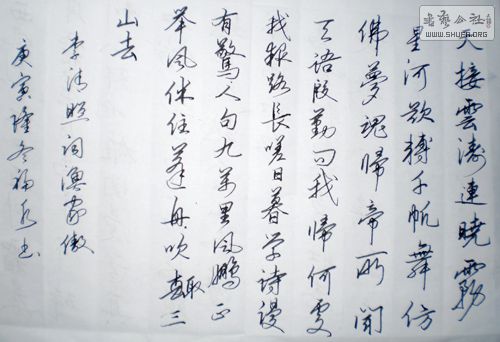 天接雲濤連曉霧
星河欲轉千帆舞仿
佛夢魂歸帝所聞
天语殷勤问我歸何處
我报路長嗟日暮学詩謾
有驚人句九萬里風鵬正
舉風休住蓬舟吹取三
山去
李清照词渔家傲
庚寅隆冬书
书艺公社